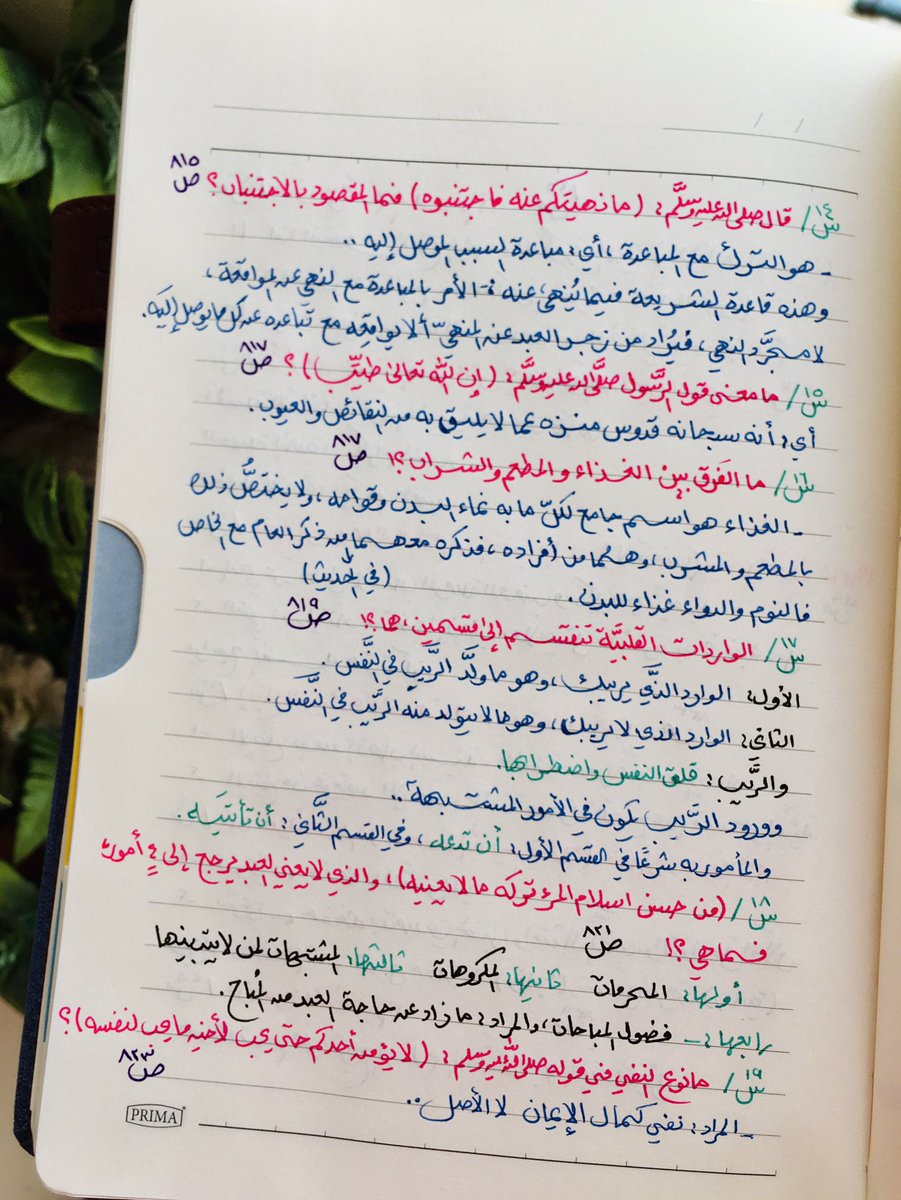 س١٤/ قال صلى الله عليه وسلَّم: (ما نهيتكم عنه فاجتنبوه) فما المقصود بالاجتناب؟ ص ٨١٥
- هو الترك مع المباعدة، أي: مباعدة السبب الموصل إليه..
وهذه قاعدة الشريعة فيما يُنهى عنه :- الأمر بالمباعدة مع النهي عن المواقعة،
لا مجرَّد النهي، فيُراد من زجر العبد عن المنهيّ ألا يواقعه مع تباعده عن كل ما يوصل إليه.
س١٥/ ما معنى قول الرَّسول صلَّى الله عليه وسلَّم: (إن الله تعالى طيّب)؟ ص ٨١٧
أي: أنه سبحانه قدوس منزه عما لا يليق به من النقائص والعيوب.
س١٦/ ما الفَرق بين الغذاء والمطعم والشراب؟! ص ٨١٧
- الغذاء هو اسم جامع لكلّ ما به نماء البدن وقوامه، ولا يختصُّ ذلك
بالمطعم والمشرب، وهما من أفراده، فذكره معهما من ذكر العام مع الخاص
(في الحديث)
فالنوم والدواء غذاء للبدن.
س١٧/ الواردات القلبيَّة تنقسم إلى قسمين، هما؟! ص ٨١٩
الأول: الوارد الذَّي يريبك، وهو ما ولَّد الرَّيب في النَّفس.
الثاني: الوارد الذي لا يريبك، وهو ما لا يتولد منه الرَّيب في النَّفس.
والرَّيب: قلق النفس واضطرابها.
وورود الرَّيب يكون في الأمور المشتبهة..
والمأمور به شرعًا في القسم الأول: أن تدعه، وفي القسم الثَّاني: أن تأتيَه.
س١٨/ (من حسن اسلام المرء تركه ما لا يعنيه)، والذي لا يعني العبد يرجع إلى ٤ أمور،
فما هي؟! ص ٨٢١
أولها: المحرمات ثانيها: المكروهات ثالثها: المشتبهات لمن لا يتبينها
رابعها :- فضول المباحات، والمراد: ما زاد عن حاجة العبد من المُباح.
س١٩/ ما نوع النفي في قوله صلى الله عليه وسلم: (لا يؤمن أحدكم حتى يحب لأخيه ما يحب لنفسه)؟ ص ٨٢٣
- المراد: نفي كمال الإيمان لا الأصل..
PRIMA